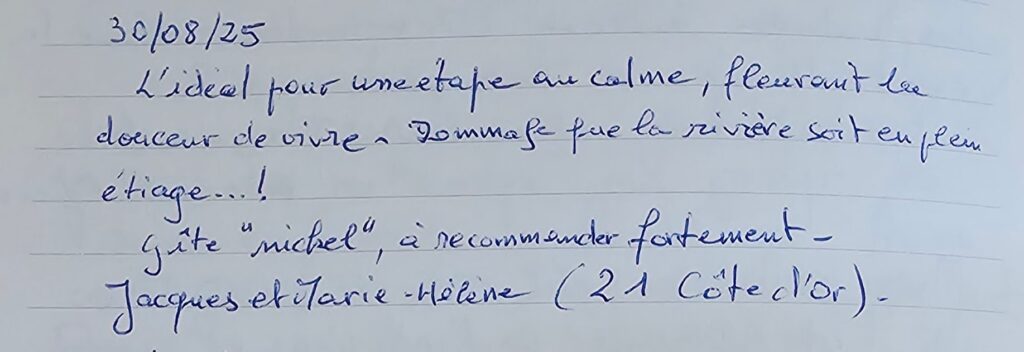 30/08/25
L'idéal pour une étape au calme, fleurant la
douceur de vivre. Dommage que la rivière soit en plein
étiage...!
Gîte "nichel", à recommander fortement -
Jacques et Marie-Hélène (21 Côte d'Or).